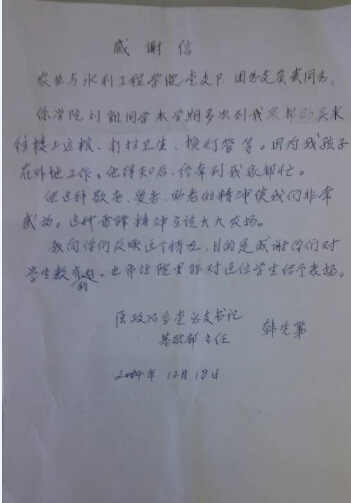 感谢信
农业与水利工程学院党支部、团总支负责同志：
你学院刘毅同学本学期多次到我家帮助买米
往楼上运粮、打扫卫生、换灯管等。因为我孩子
在外地工作。他得知后，经常到我家帮忙。
他这种敬老、爱老、助老的精神使我们非常
感动。这种雷锋精神应该大大发扬。
我向你们反映这个情况，目的是感谢你们对
学生教育，也希望院里能对这位学生给予表扬。
党总支书记
基础部主任 韩
12月18日